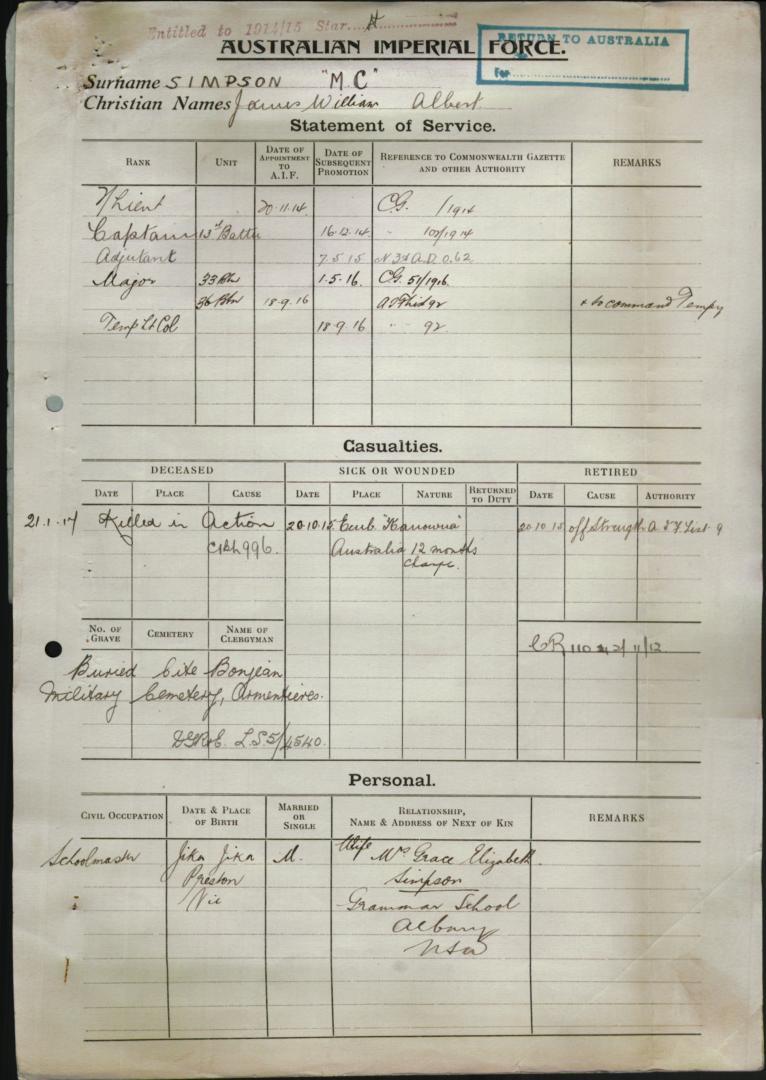 Entitled to 1914/15 Star
RETURN TO AUSTRALIA
For
AUSTRALIAN IMPERIAL FORCE.
Surname SIMPSON "MC"
Christian Names James William Albert
Statement of Service.
RANK UNIT DATE OF APPOINTMENT TO A.I.F. DATE OF SUBSEQUENT PROMOTION REFERENCE TO COMMONWEALTH GAZETTE AND OTHER AUTHORITY REMARKS
Lieut 20.11.14 C.G. /1914
Captain 13th Battn 16.12.14 " 102/1914
Adjutant 7.5.15
Major 33 Btn 1.5.16. C.G. 51/1916
36 Btn 18.9.16 92 + to command Tempy
Temp Lt Col 18.9.16 " " 92
Casualties.
DECEASED SICK OR WOUNDED RETIRED
DATE PLACE CAUSE DATE PLACE NATURE RETURNED TO DUTY DATE CAUSE AUTHORITY
21.1.17 Killed in Action 20.10.15 Emb. "Kanowna" 20.10.15 off Strength A.I.F. List 9
996. Australia 12 months
change.
No. OF GRAVE CEMETERY NAME OF CLERGYMAN
110
Buried Cite Bonjean
Military Cemetery, Armentieres.
L.S. 5/4540.
Personal.
CIVIL OCCUPATION DATE & PLACE OF BIRTH MARRIED OR SINGLE RELATIONSHIP, NAME & ADDRESS OF NEXT OF KIN REMARKS
Schoolmaster Jika Jika M. Wife Mrs Grace Elizabeth
Preston Simpson
Vic Grammar School
Albury
NSW